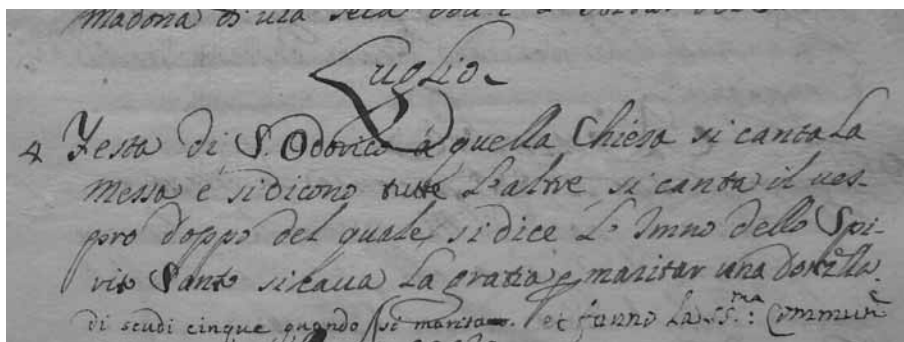 madona di
Luglio
4 Festa di S. Odorico à quella Chiesa si canta La
messa e si dicono tutte L'altre si canta il ues-
pro doppo del quale, si dice L'Imno dello Spi-
rito Santo si caua La gratia p maritar una donzella
di scudi cinque quando si marita. et fanno La SS.ma: Commun